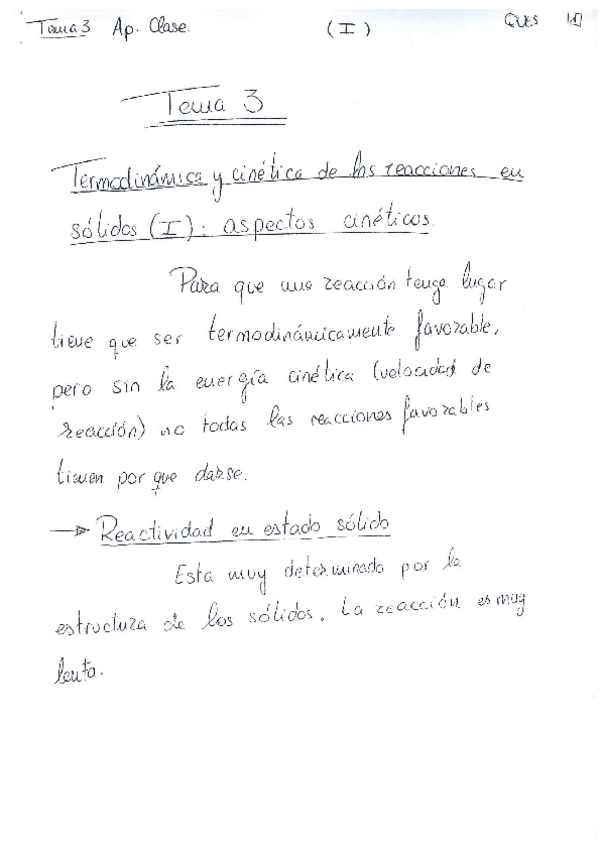 Tema 3 Ap. Clase. (I) QUES
Tema 3
Termodinámica y cinética de las reacciones en
sólidos (I): aspectos cinéticos.
Para que una reacción tenga lugar
tiene que ser termodinámicamente favorable,
pero sin la energía cinética (velocidad de
reacción) no todas las reacciones favorables
tienen por que darse.
→ Reactividad en estado sólido
Esta muy determinado por la
estructura de los sólidos. La reacción es muy
lenta.